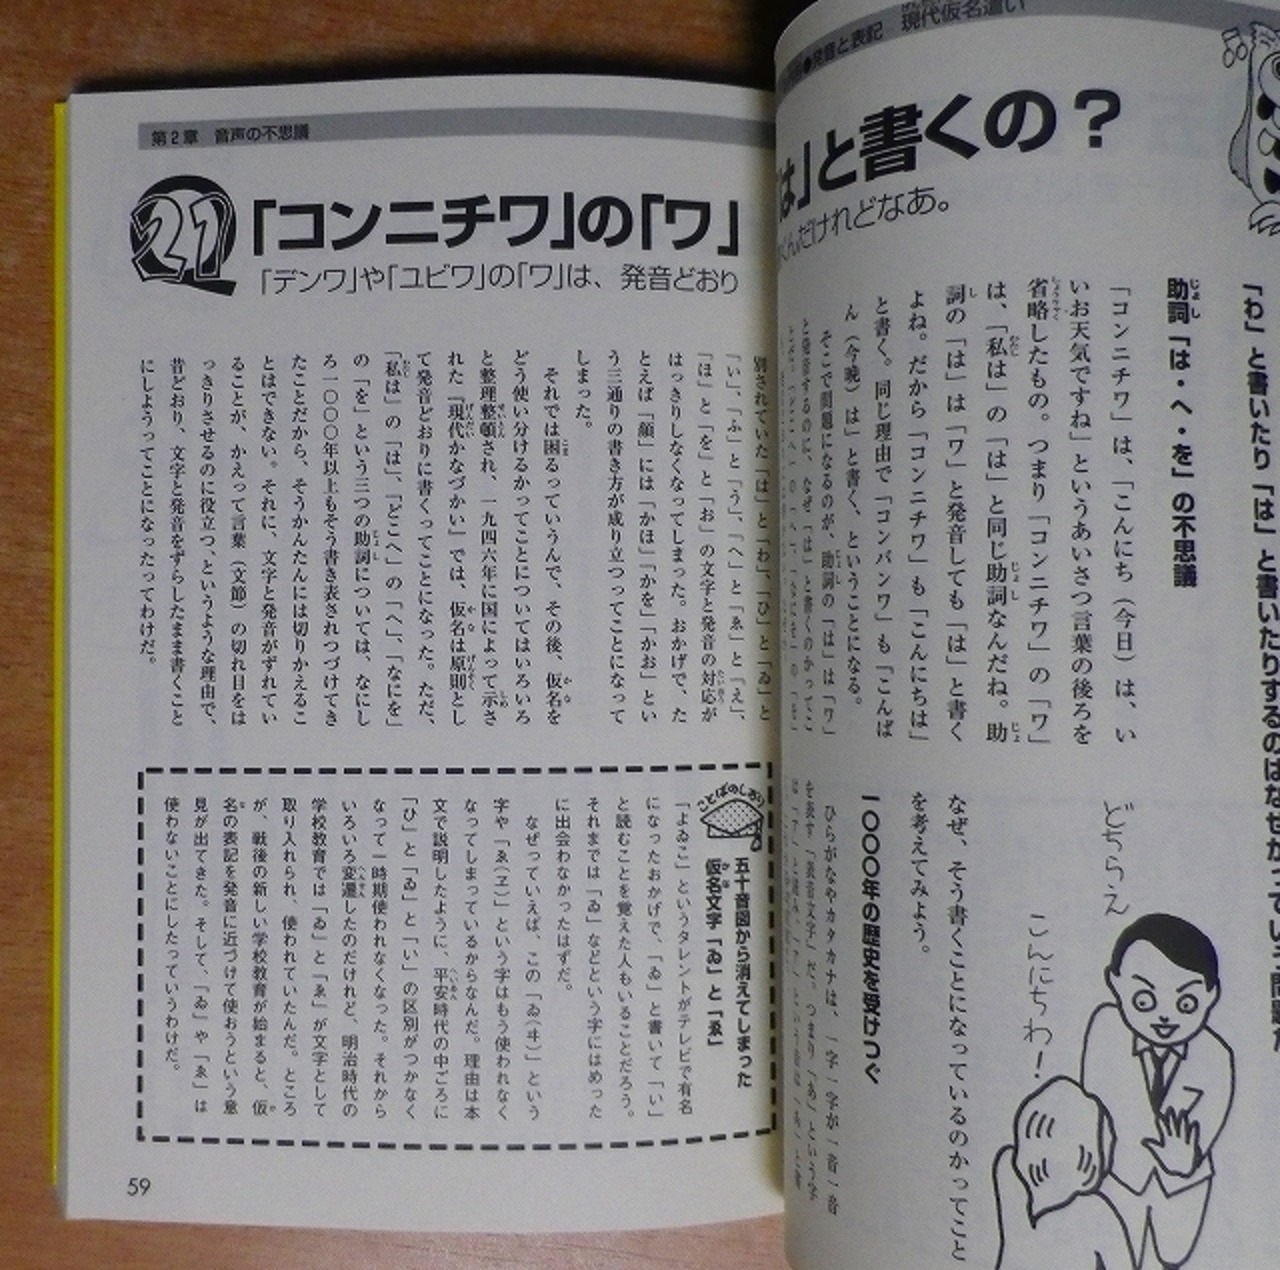 第2章 音声の不思議
21
「コンニチワ」の「ワ」
「デンワ」や「ユビワ」の「ワ」は、発音どおり
●発音と表記 現代仮名遣い
「は」と書くの？
んだけれどなあ。
助詞「は・へ・を」の不思議
「コンニチワ」は、「こんにち（今日）は、い
いお天気ですね」というあいさつ言葉の後ろを
省略したもの。つまり「コンニチワ」の「ワ」
は、「私は」の「は」と同じ助詞なんだね。助
詞の「は」は「ワ」と発音しても「は」と書く
よね。だから「コンニチワ」も「こんにちは」
と書く。同じ理由で「コンバンワ」も「こんば
ん（今晩）は」と書く、ということになる。
そこで問題になるのが、助詞の「は」は「ワ」
と発音するのに、なぜ「は」と書くのかってこ
なぜ、そう書くことになっているのかってこと
を考えてみよう。
一〇〇〇年の歴史を受けつぐ
ひらがなやカタカナは、一字一字が一音一音
を表す「表音文字」だ。つまり「あ」という字
どちらえ
こんにちわ！
別されていた「は」と「わ」、「ひ」と「ゐ」と
「い」、「ふ」と「う」、「へ」と「ゑ」と「え」、
「ほ」と「を」と「お」の文字と発音の対応が
はっきりしなくなってしまった。おかげで、た
とえば「顔」には「かほ」「かを」「かお」とい
う三通りの書き方が成り立つってことになって
しまった。
それでは困るっていうんで、その後、仮名を
どう使い分けるかってことについてはいろいろ
と整理整頓され、一九四六年に国によって示さ
れた『現代かなづかい』では、仮名は原則とし
て発音どおりに書くってことになった。ただ、
「私は」の「は」、「どこへ」の「へ」、「なにを」
の「を」という三つの助詞については、なにし
ろ一〇〇〇年以上もそう書き表されつづけてき
たことだから、そうかんたんには切りかえるこ
とはできない。それに、文字と発音がずれてい
ることが、かえって言葉（文節）の切れ目をは
っきりさせるのに役立つ、というような理由で、
昔どおり、文字と発音をずらしたまま書くこと
にしようってことになったってわけだ。
ことばのしおり
五十音図から消えてしまった
仮名文字「ゐ」と「ゑ」
「よゐこ」というタレントがテレビで有名
になったおかげで、「ゐ」と書いて「い」
と読むことを覚えた人もいることだろう。
それまでは「ゐ」などという字にはめった
に出会わなかったはずだ。
なぜっていえば、この「ゐ（ヰ）」という
字や「ゑ（ヱ）」という字はもう使われなく
なってしまっているからなんだ。理由は本
文で説明したように、平安時代の中ごろに
「ひ」と「ゐ」と「い」の区別がつかなく
なって一時期使われなくなった。それから
いろいろ変遷したのだけれど、明治時代の
学校教育では「ゐ」と「ゑ」が文字として
取り入れられ、使われていたんだ。ところ
が、戦後の新しい学校教育が始まると、仮
名の表記を発音に近づけて使おうという意
見が出てきた。そして、「ゐ」や「ゑ」は
使わないことにしたっていうわけだ。
59